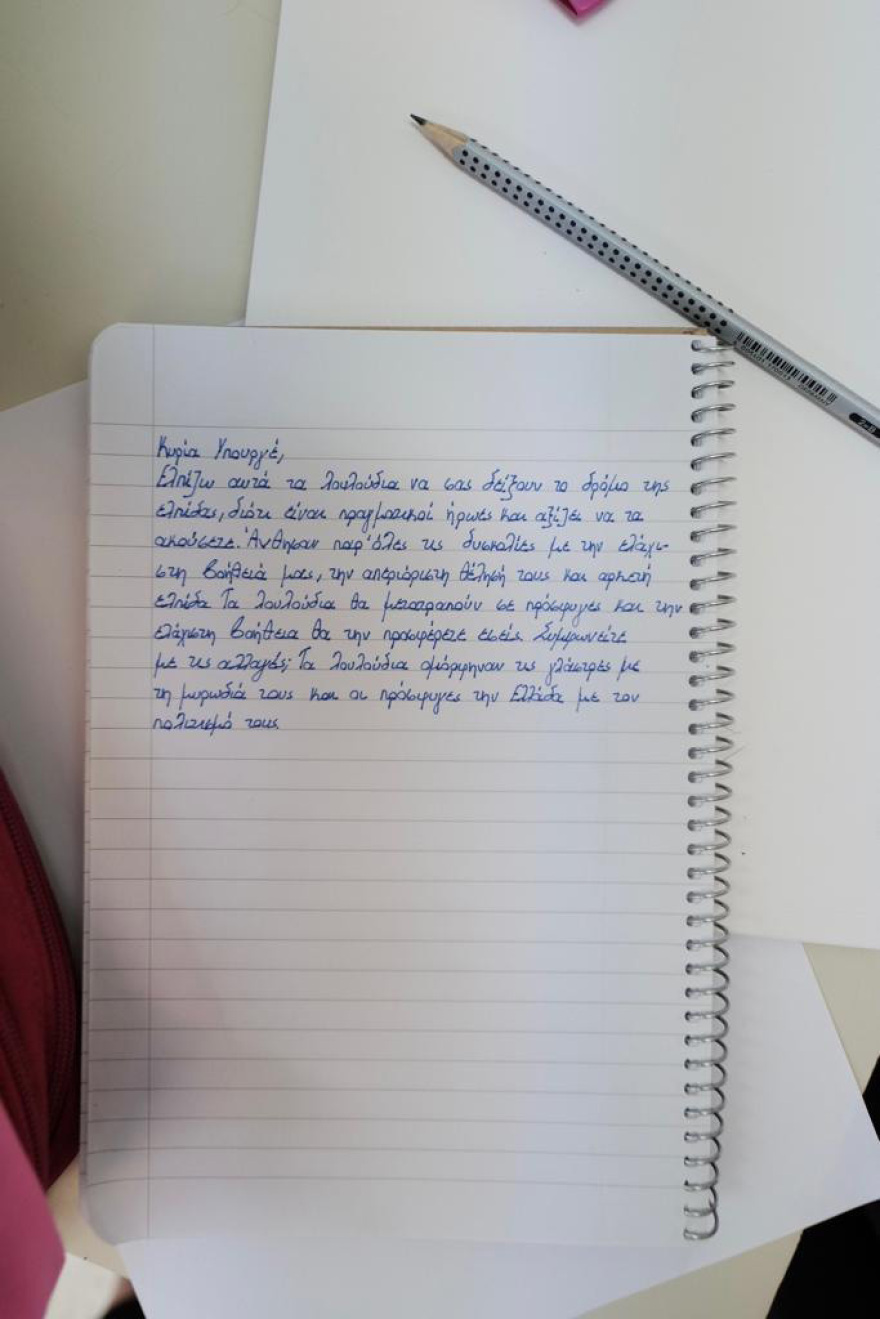 Κυρία Υπουργέ,
Ελπίζω αυτά τα λουλούδια να σας δείξουν το δρόμο της
ελπίδας, διότι είναι πραγματικοί ήρωες και αξίζει να τα
ακούσετε. Άνθησαν παρ'όλες τις δυσκολίες με την ελάχι-
στη βοήθειά μας, την απεριόριστη θέλησή τους και αρκετή
ελπίδα. Τα λουλούδια θα μετατραπούν σε πρόσφυγες και την
ελάχιστη βοήθεια θα την προσφέρετε εσείς. Συμφωνείτε
με τις αλλαγές; Τα λουλούδια ομόρφηναν τις γλάστρες με
τη μυρωδιά τους και οι πρόσφυγες την Ελλάδα με τον
πολιτισμό τους